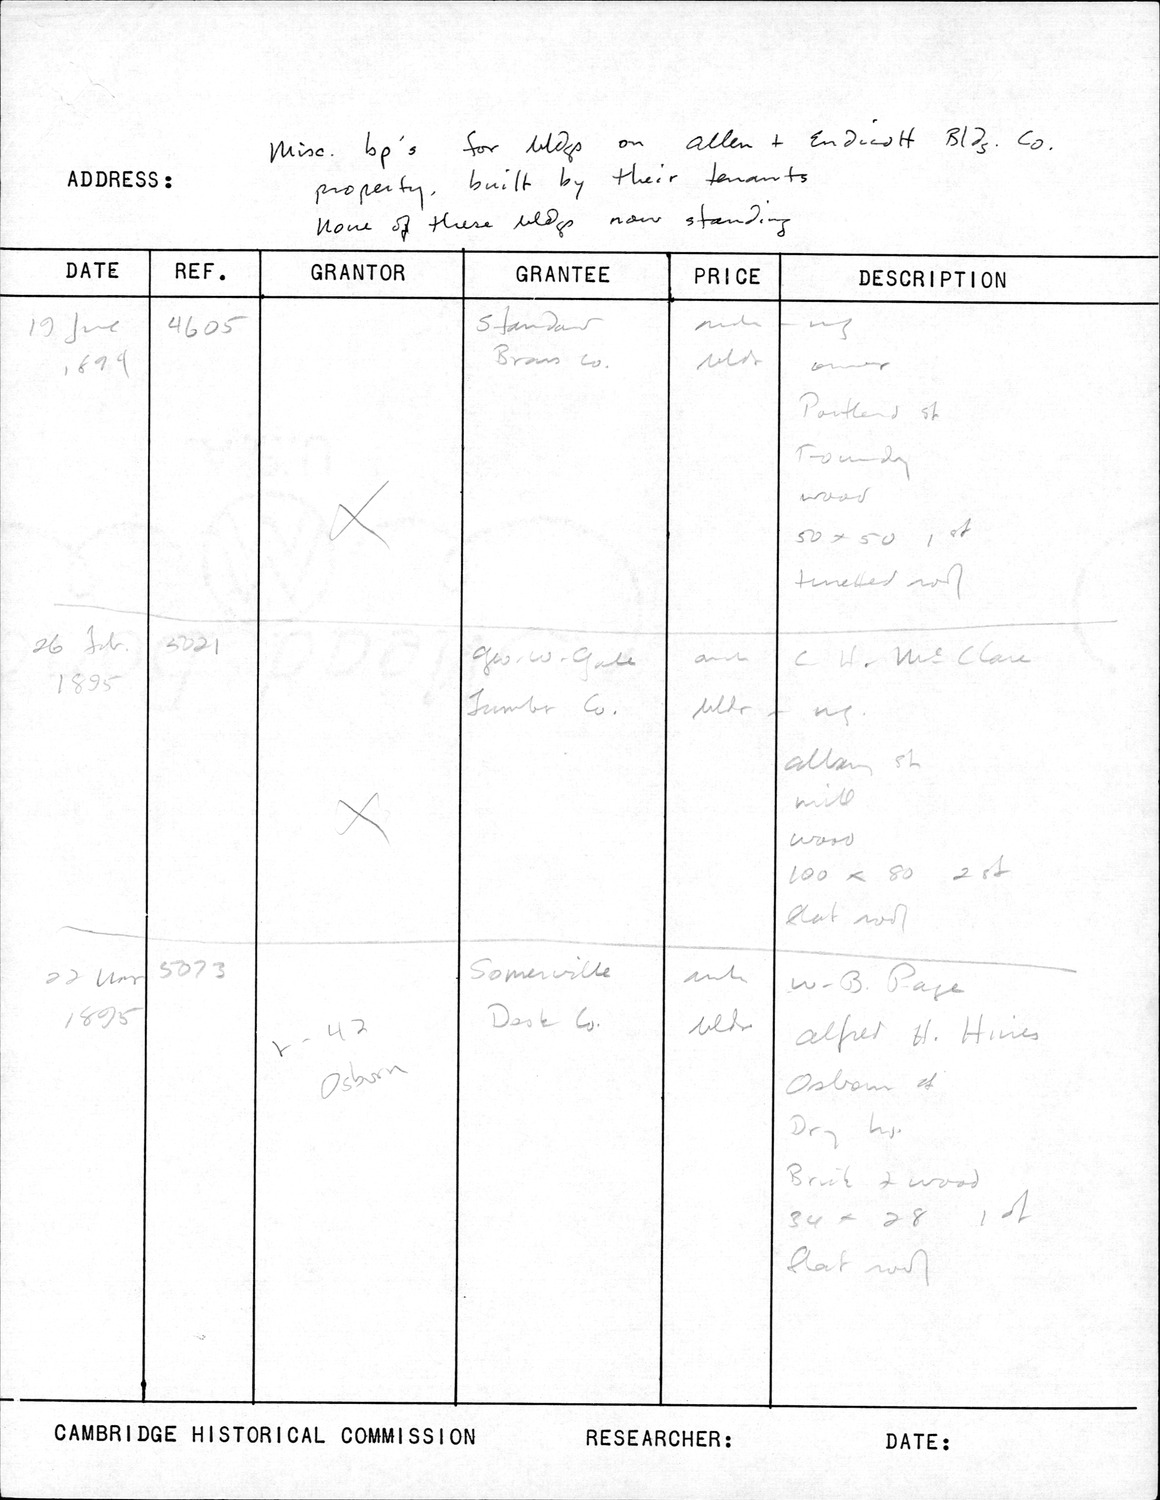 Misc. bp's for bldgs on Allen + Endicott Bldg. Co.
ADDRESS: property, built by their tenants
None of these bldgs now standing
DATE REF. GRANTOR GRANTEE PRICE DESCRIPTION
19 June 4605 Standard arch - ng
1894 Brass Co. bldr owner
Portland st
Foundry
wood
50 x 50 1 st
roof
26 Feb. 5021 Geo. W. Gale arch C H. McClare
1895 Lumber Co. bldr - ng.
Albany st
mill
wood
100 x 80 2 st
flat roof
22 Mar 5073 Somerville arch W. B. Page
1895 - 42 Desk Co. bldr Alfred H. Hines
Osborn Osborn st
Dry hs.
Brick & wood
34 x 28 1 st
flat roof
CAMBRIDGE HISTORICAL COMMISSION RESEARCHER: DATE: